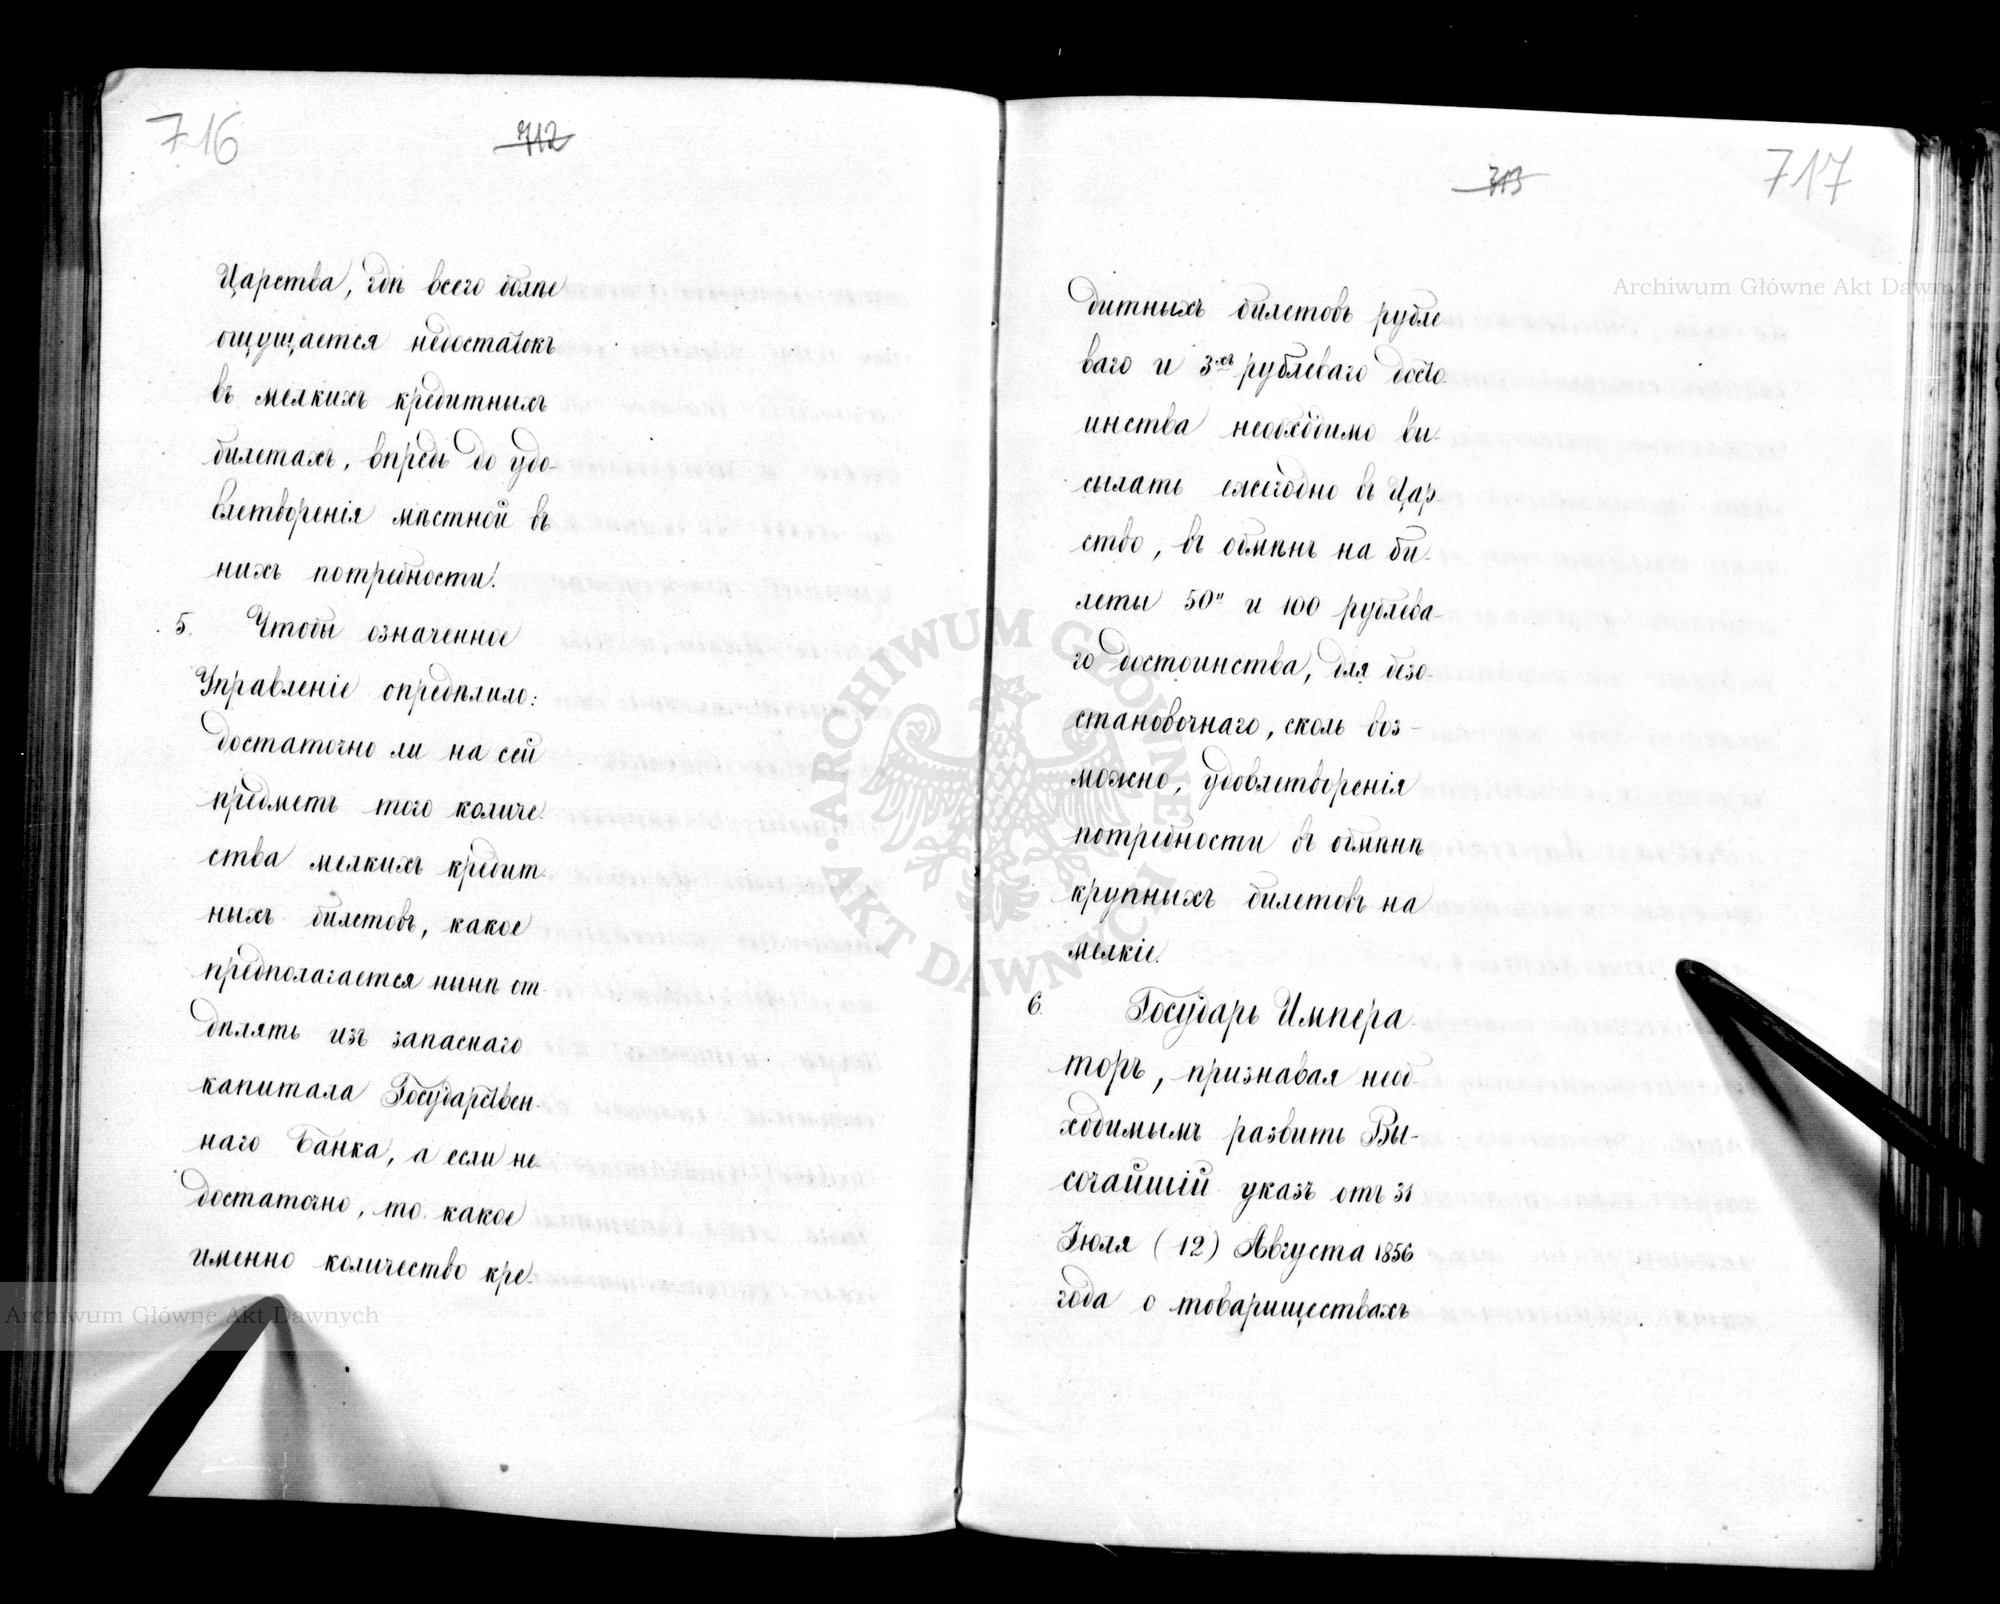 716
712
Царства, гдѣ всего болѣе
ощущается недостатокъ
въ мелкихъ кредитныхъ
билетахъ, впредь до удо-
влетворенія мѣстной въ
нихъ потребности.
5. Чтобы означенное
Управленіе опредѣлило:
достаточно ли на сей
предметъ того количе
ства мелкихъ кредит-
ныхъ билетовъ, какое
предполагается нынѣ от
дѣлять изъ запаснаго
капитала Государствен-
наго Банка, а если не-
достаточно, то какое
именно количество кре-
717
713
дитныхъ билетовъ рубле
ваго и 3хъ рублеваго досто
инства необходимо вы-
сылать ежегодно въ Цар-
ство, въ обмѣнъ на би-
леты 50и и 100 рублева-
го достоинства, для безо-
становочнаго, сколь воз-
можно, удовлетворенія
потребности въ обмѣнѣ
крупныхъ билетовъ на
мелкіе.
6. Государь Импера-
торъ, признавая необ-
ходимымъ развить Вы-
сочайшій указъ отъ 31
Іюля (12) Августа 1856
года о товариществахъ
Archiwum Główne Akt Dawnych
Archiwum Główne Akt Dawnych
ARCHIWUM GŁÓWNE AKT DAWNYCH